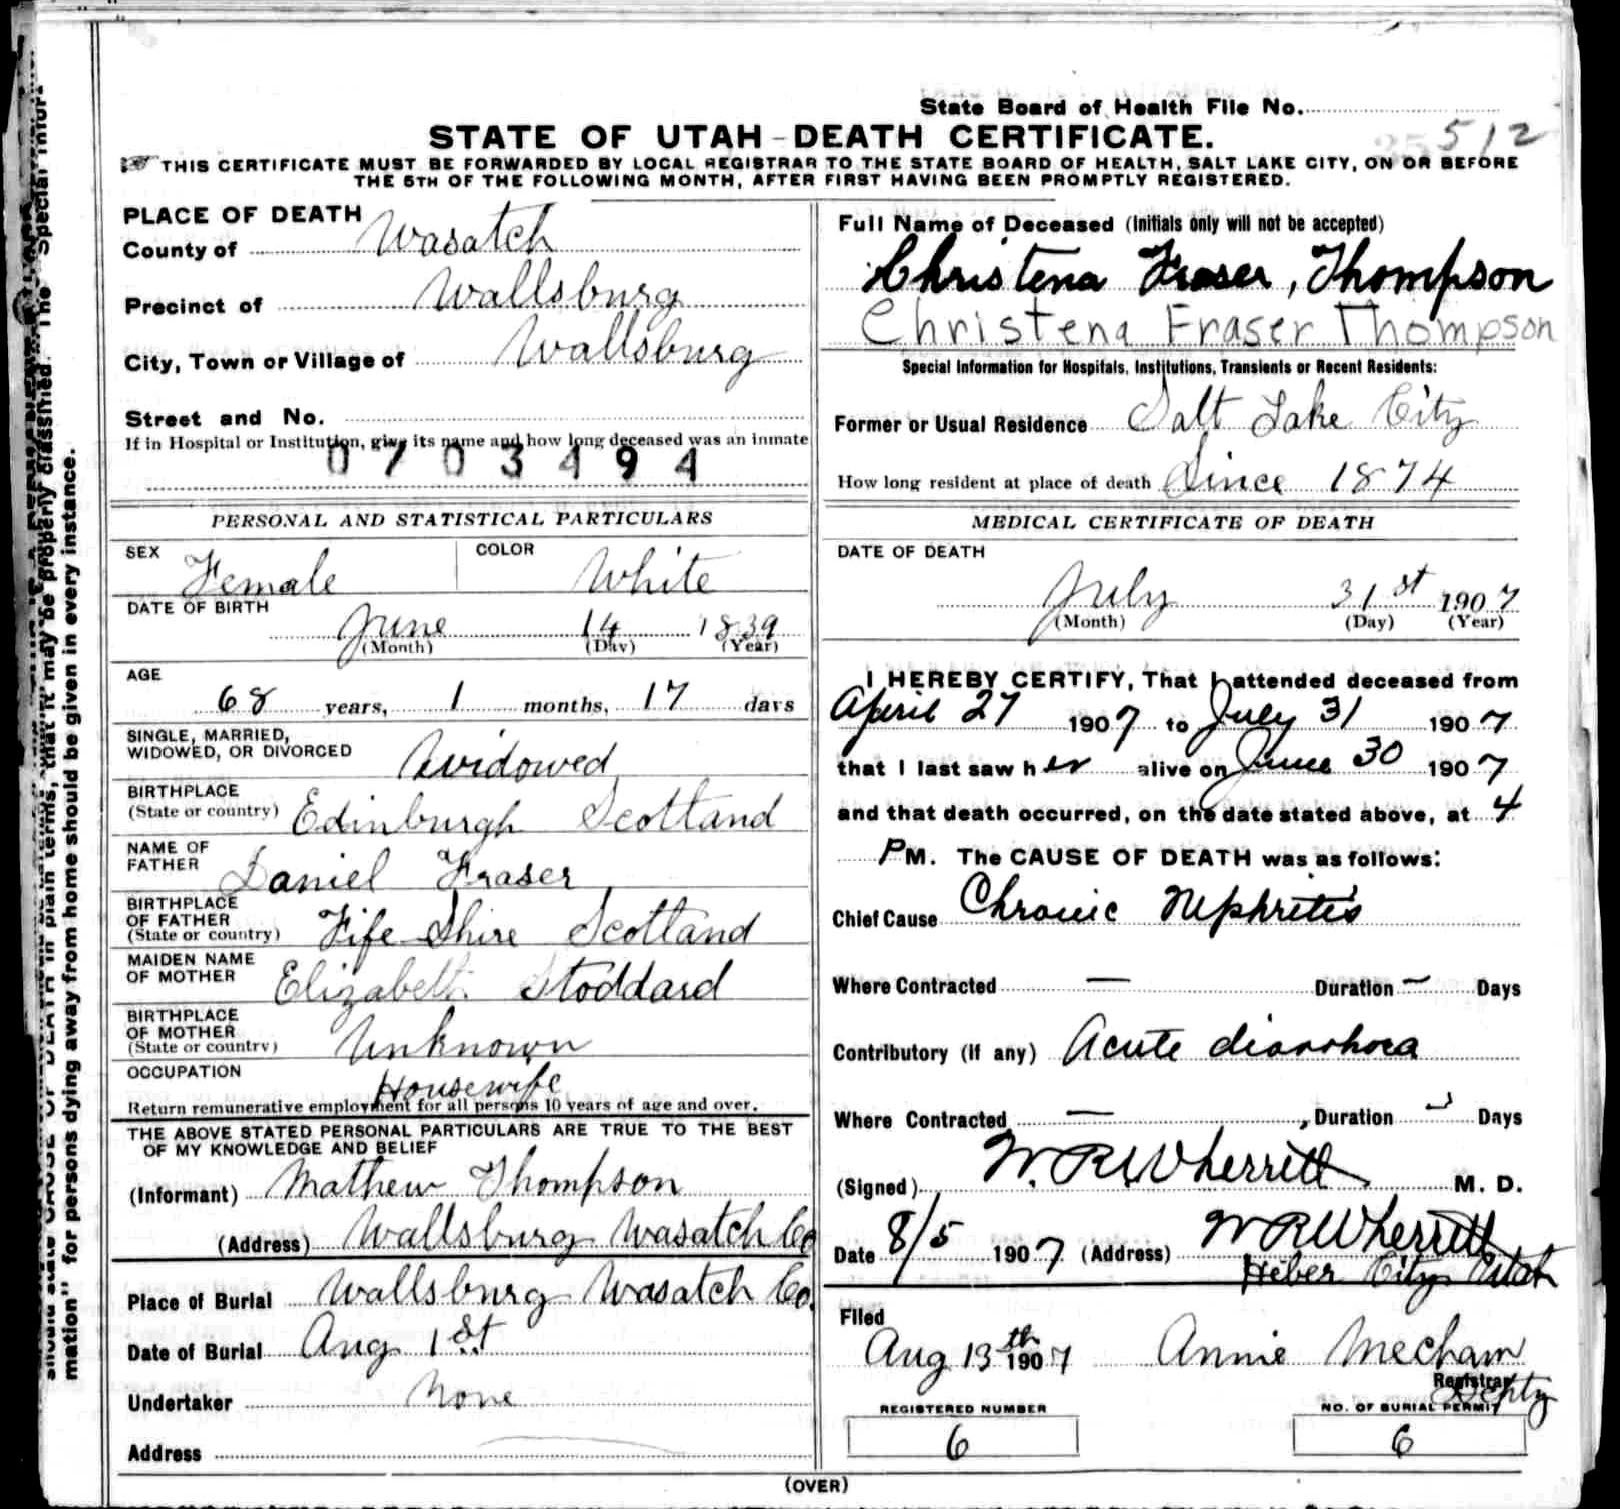 State Board of Health File No.
512
STATE OF UTAH-DEATH CERTIFICATE.
THIS CERTIFICATE MUST BE FORWARDED BY LOCAL REGISTRAR TO THE STATE BOARD OF HEALTH, SALT LAKE CITY, ON OR BEFORE
THE 5TH OF THE FOLLOWING MONTH, AFTER FIRST HAVING BEEN PROMPTLY REGISTERED.
PLACE OF DEATH
County of Wasatch
Precinct of Wallsburg
City, Town or Village of Wallsburg
Street and No.
If in Hospital or Institution, give its name and how long deceased was an inmate
0703494
PERSONAL AND STATISTICAL PARTICULARS
SEX Female COLOR White
DATE OF BIRTH
June 14 1839
(Month) (Day) (Year)
AGE
68 years, 1 months, 17 days
SINGLE, MARRIED,
WIDOWED, OR DIVORCED Widowed
BIRTHPLACE
(State or country) Edinburgh Scotland
NAME OF
FATHER Daniel Fraser
BIRTHPLACE
OF FATHER
(State or country) Fife Shire Scotland
MAIDEN NAME
OF MOTHER Elizabeth Stoddard
BIRTHPLACE
OF MOTHER
(State or country) Unknown
OCCUPATION
Housewife
Return remunerative employment for all persons 10 years of age and over.
THE ABOVE STATED PERSONAL PARTICULARS ARE TRUE TO THE BEST
OF MY KNOWLEDGE AND BELIEF
(Informant) Mathew Thompson
(Address) Wallsburg Wasatch Co
Place of Burial Wallsburg Wasatch Co.
Date of Burial Aug 1st
Undertaker None
Address
Full Name of Deceased (Initials only will not be accepted)
Christena Fraser, Thompson
Christena Fraser Thompson
Special Information for Hospitals, Institutions, Transients or Recent Residents:
Former or Usual Residence Salt Lake City
How long resident at place of death Since 1874
MEDICAL CERTIFICATE OF DEATH
DATE OF DEATH
July 31st 1907
(Month) (Day) (Year)
I HEREBY CERTIFY, That I attended deceased from
April 27 1907 to July 31 1907
that I last saw her alive on June 30 1907
and that death occurred, on the date stated above, at 4
PM. The CAUSE OF DEATH was as follows:
Chief Cause Chronic Nephritis
Where Contracted — Duration — Days
Contributory (if any) Acute diarrhoea
Where Contracted — , Duration Days
(Signed) W. R. Wherritt M. D.
Date 8/5 1907 (Address) W R Wherritt
Heber City Utah
Filed
Aug 13th 1907 Annie Mecham
Registrar
Depty
REGISTERED NUMBER
6
NO. OF BURIAL PERMIT
6
(OVER)
should state CAUSE OF DEATH in plain terms, that it may be properly classified. The "Special Infor-
mation" for persons dying away from home should be given in every instance.